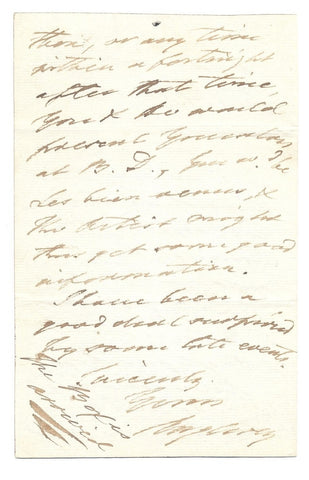 then, or any time
within a fortnight
after that time,
you & he would
present yourselves
at B. D., you w.d be
les bien venus, &
the Artist might
thus get some good
information.
I have been a
good deal surprised
by some late events.
Sincerely
Yours
The Box is
arrived